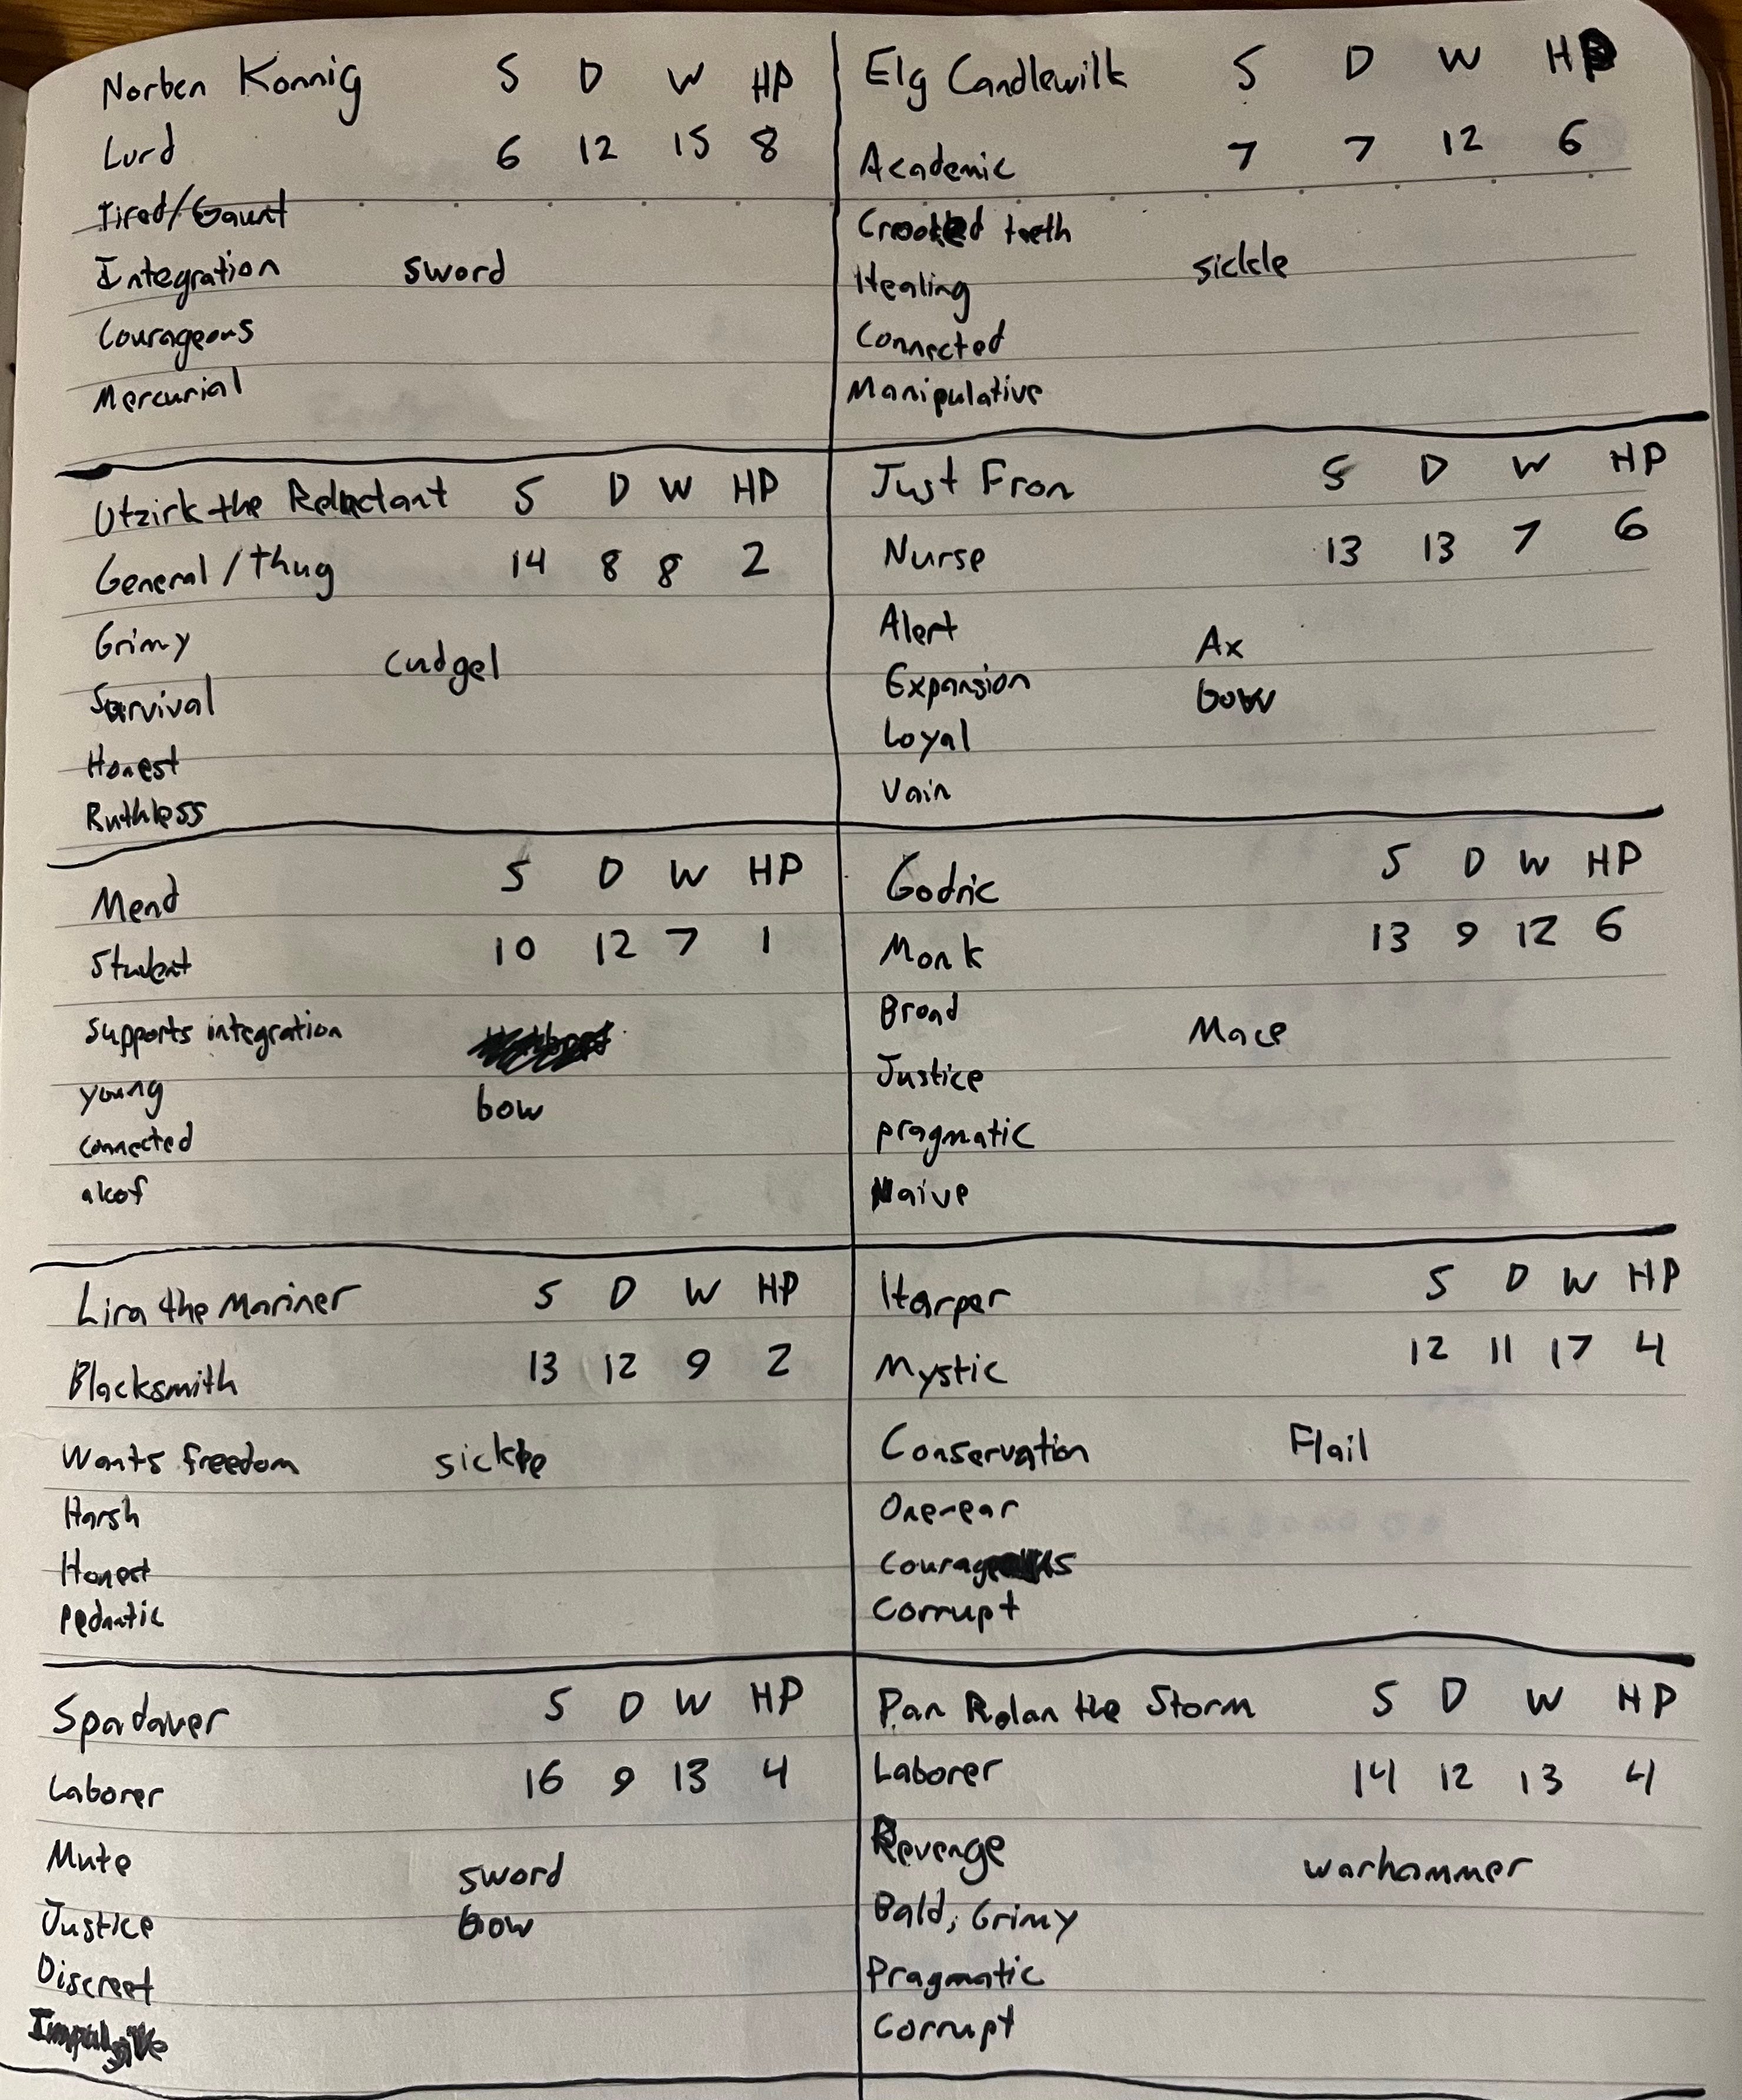 Norben Konnig S D W HP
Lurd 6 12 15 8
Tired/Gaunt
Integration sword
Courageous
Mercurial
Elg Candlewilk S D W HP
Academic 7 7 12 6
Crooked teeth
Healing sickle
Connected
Manipulative
Utzirk the Reluctant S D W HP
General/thug 14 8 8 2
Grimy
cudgel
Survival
Honest
Ruthless
Just Fron S D W HP
Nurse 13 13 7 6
Alert Ax
Expansion bow
Loyal
Vain
Mend S D W HP
Student 10 12 7 1
Supports integration
young bow
connected
aloof
Godric S D W HP
Monk 13 9 12 6
Broad Mace
Justice
pragmatic
Naive
Lira the Mariner S D W HP
Blacksmith 13 12 9 2
Wants freedom sickle
Harsh
Honest
Pedantic
Harper S D W HP
Mystic 12 11 17 4
Conservation Flail
One-ear
Courageous
Corrupt
Spadaver S D W HP
Laborer 16 9 13 4
Mute sword
Justice bow
Discreet
Impulsive
Pan Rolan the Storm S D W HP
Laborer 14 12 13 4
Revenge warhammer
Bald, Grimy
Pragmatic
Corrupt